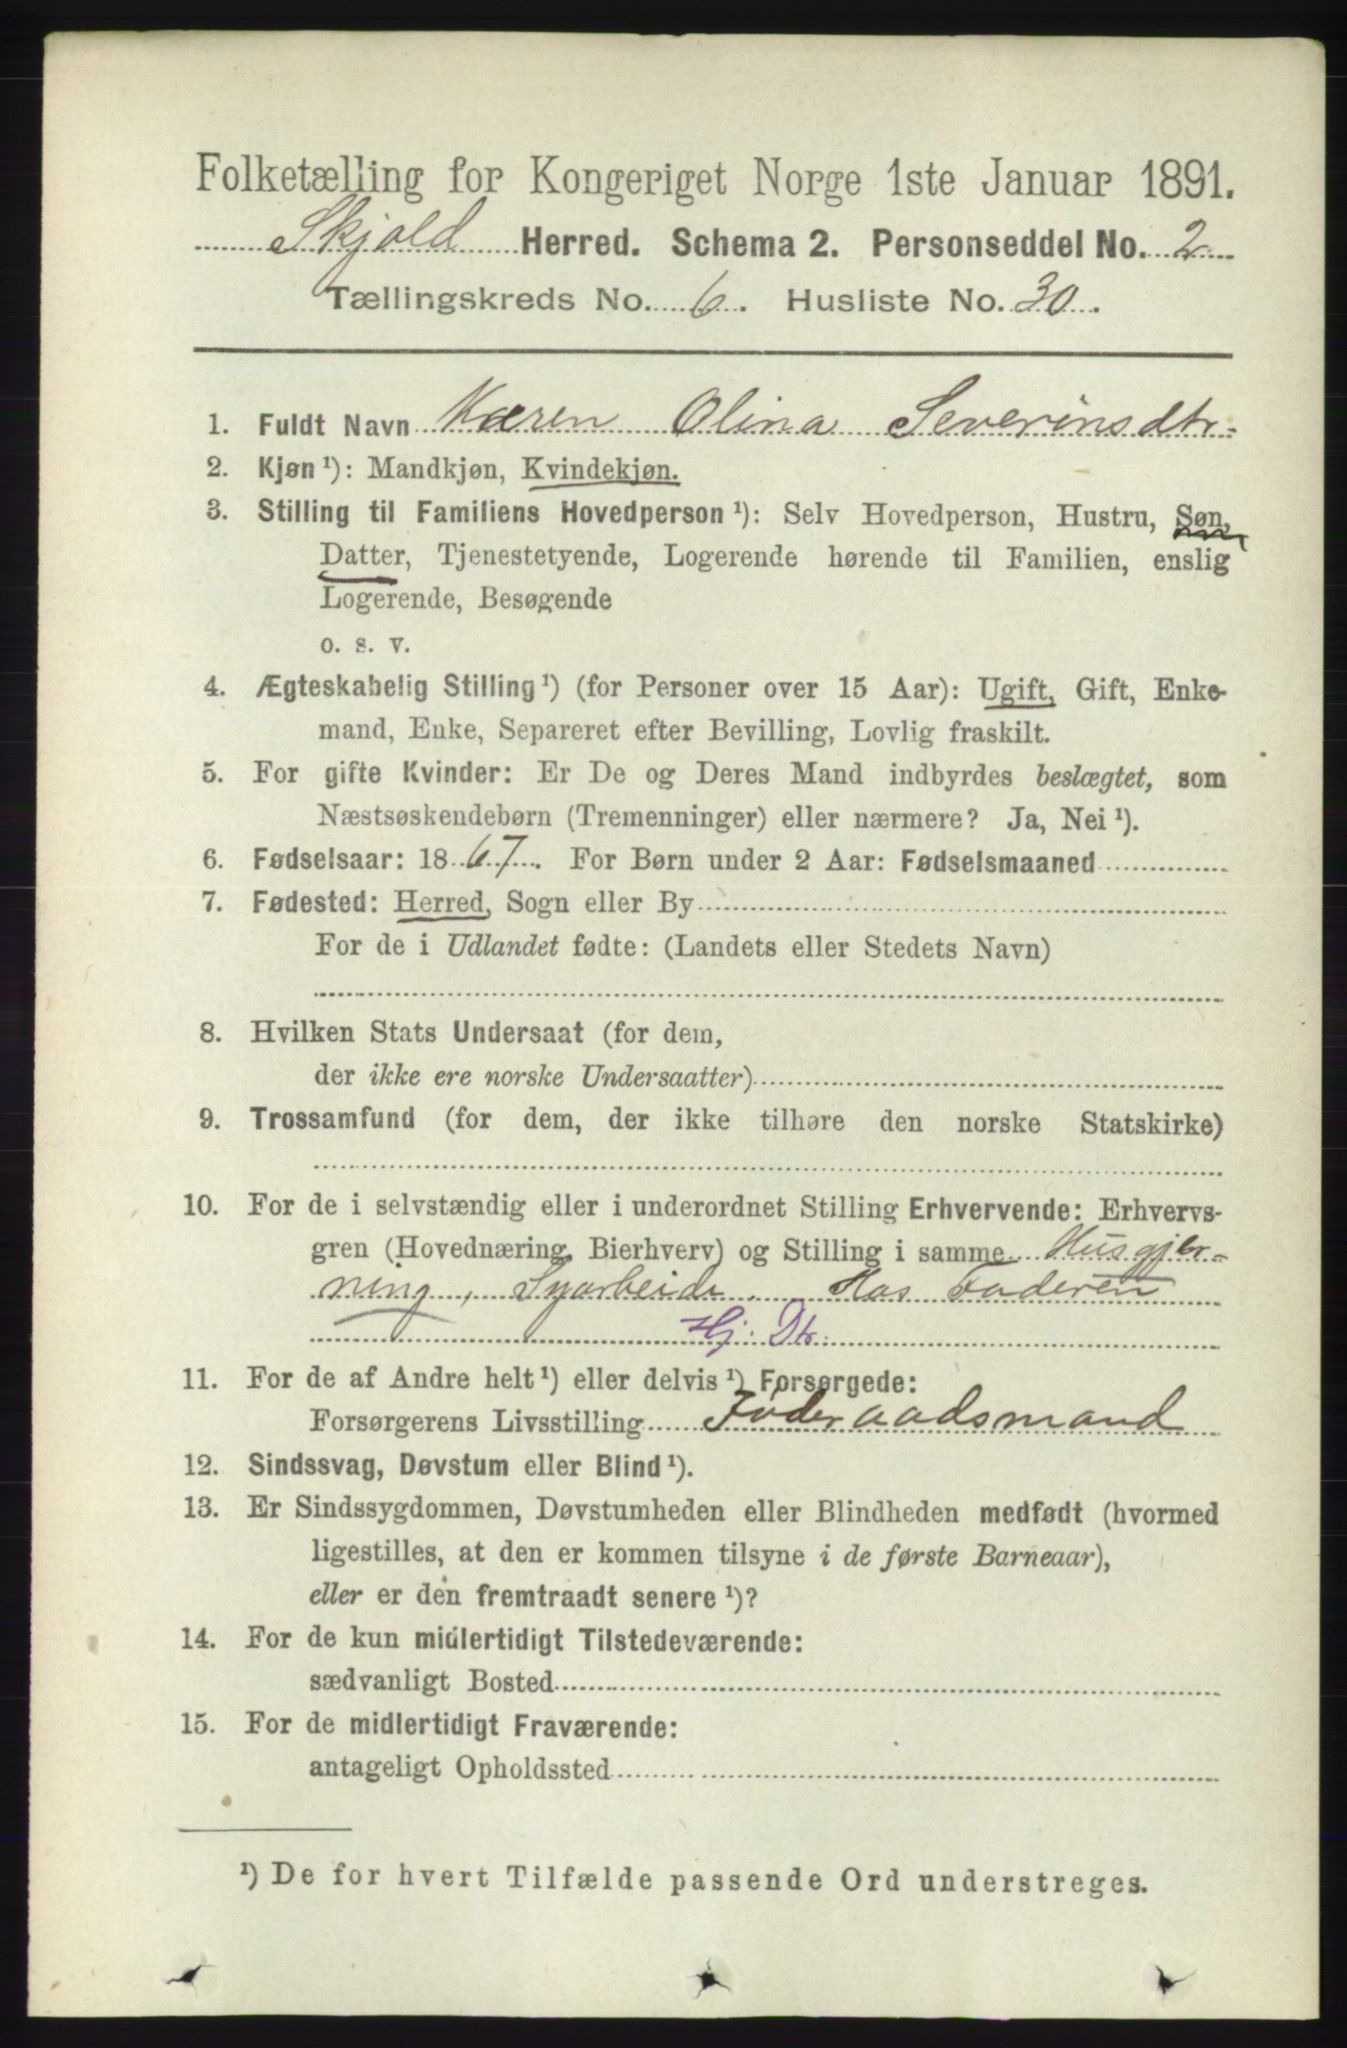 Folketælling for Kongeriget Norge 1ste Januar 1891.
Skjold Herred. Schema 2. Personseddel No. 2
Tællingskreds No. 6. Husliste No. 30.
1. Fuldt Navn Karen Olina Severinsdtr.
2. Kjøn ¹): Mandkjøn, Kvindekjøn.
3. Stilling til Familiens Hovedperson ¹): Selv Hovedperson, Hustru, Søn,
Datter, Tjenestetyende, Logerende hørende til Familien, enslig
Logerende, Besøgende
o. s. v.
4. Ægteskabelig Stilling ¹) (for Personer over 15 Aar): Ugift, Gift, Enke-
mand, Enke, Separeret efter Bevilling, Lovlig fraskilt.
5. For gifte Kvinder: Er De og Deres Mand indbyrdes beslægtet, som
Næstsøskendebørn (Tremenninger) eller nærmere? Ja, Nei ¹).
6. Fødselsaar: 1867. For Børn under 2 Aar: Fødselsmaaned
7. Fødested: Herred, Sogn eller By
For de i Udlandet fødte: (Landets eller Stedets Navn)
8. Hvilken Stats Undersaat (for dem,
der ikke ere norske Undersaatter)
9. Trossamfund (for dem, der ikke tilhøre den norske Statskirke)
10. For de i selvstændig eller i underordnet Stilling Erhvervende: Erhvervs-
gren (Hovednæring, Bierhverv) og Stilling i samme Husgjer-
ning, Syarbeide. Hos Faderen
Hj. Dtr.
11. For de af Andre helt ¹) eller delvis ¹) Forsørgede:
Forsørgerens Livsstilling Føderaadsmand
12. Sindssvag, Døvstum eller Blind ¹).
13. Er Sindssygdommen, Døvstumheden eller Blindheden medfødt (hvormed
ligestilles, at den er kommen tilsyne i de første Barneaar),
eller er den fremtraadt senere ¹)?
14. For de kun midlertidigt Tilstedeværende:
sædvanligt Bosted
15. For de midlertidigt Fraværende:
antageligt Opholdssted
¹) De for hvert Tilfælde passende Ord understreges.